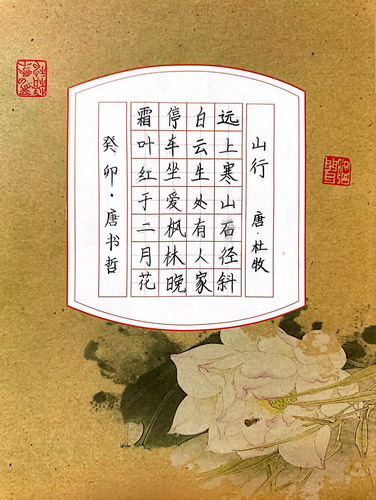 山行 唐·杜牧
远上寒山石径斜
白云生处有人家
停车坐爱枫林晚
霜叶红于二月花
癸卯·唐书哲